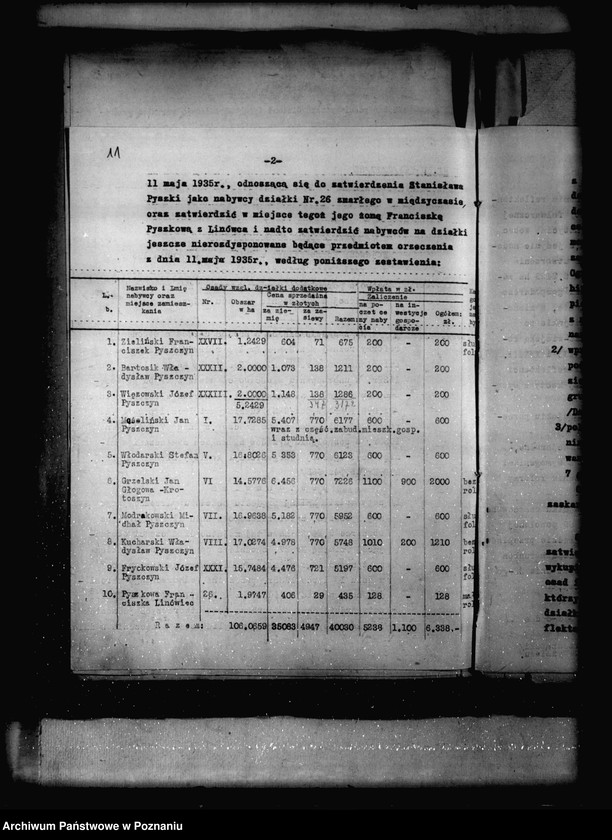 11
-2-
11 maja 1935r., odnoszącą się do zatwierdzenia Stanisława
Pyszki jako nabywcy działki Nr.26 zmarłego w międzyczasie,
oraz zatwierdzić w miejsce tegoż jego żonę Franciszkę
Pyszkową z Lindwca i nadto zatwierdzić nabywców na działki
jeszcze nierozdysponowane będące przedmiotem orzeczenia
z dnia 11.maja 1935r., według poniższego zestawienia:
L. b. Nazwisko i Imię nabywcy oraz miejsce zamieszkania Osady wzgl. działki dodatkowe Wpłata w zł.
Nr. Obszar w ha Cena sprzedażna w złotych Zaliczenie
za ziemię za zasiewy Razem: na poczet ceny nabycia na inwestycje gospodarcze Ogółem: zł.
1. Zieliński Fran- XXVII. 1.2429 604 71 675 200 - 200 słu
ciszek Pyszczyn fol
2. Bartosik Wła- XXXII. 2.0000 1.073 138 1211 200 - 200
dysław Pyszczyn
3. Więzowski Józef XXXIII. 2.0000 1.148 138 1286 200 - 200
Pyszczyn 5.2429 347 3172
4. Musliński Jan I. 17.7285 5.407 770 6177 600 - 600
Pyszczyn wraz z częśc.zabud.mieszk.gosp.
i studnią.
5. Włodarski Stefan V. 16.8026 5 353 770 6123 600 - 600
Pyszczyn
6. Grzelski Jan VI 14.5776 6.456 770 7226 1100 900 2000 bez
Głogowa -Kro- rol
toszyn
7. Modrakowski Mi- VII. 16.9638 5.182 770 5952 600 - 600 słu
chał Pyszczyn fol
8. Kucharski Wła- VIII. 17.0274 4.978 770 5748 1010 200 1210 bez
dysław Pyszczyn rol
9. Fryckowski Józef XXXI. 15.7484 4.476 721 5197 600 - 600 słu
Pyszczyn fol
10. Pyszkowa Fran - 26. 1.9747 406 29 435 128 - 128 mał
ciszka Linówiec rol
Razem: 106.0659 35083 4947 40030 5238 1.100 6.338.-
2/
3/
7
zaska
zatwi
wykup
osad
któryc
działk
flekt
Archiwum Państwowe w Poznaniu